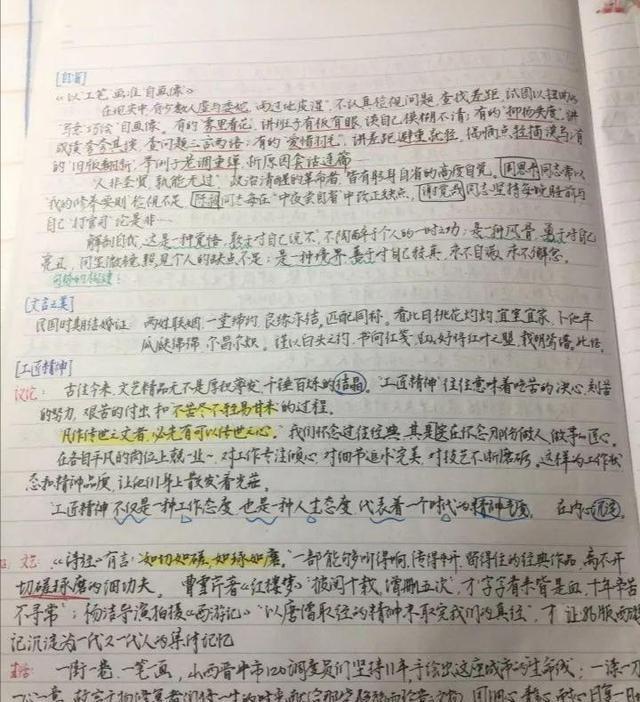 [自省]
《以"工笔"画准"自画像"》
在现实中，有少数人虚与委蛇，"雨过地皮湿"，不认真检视问题、查找差距，试图以扭曲的
"写意"巧绘"自画像"。有的"雾里看花"，讲班子有板有眼，谈自己模糊不清；有的"抑扬失度"，讲
成绩夸夸其谈，查问题三言两语；有的"爱惜羽毛"，讲差距避重就轻，偶触点轻描淡写；有
的"旧版翻新"，等同于老调重弹，析原因会话连篇
"人非圣贤，孰能无过"，政治清醒的革命者，皆有躬身自省的高度自觉。周恩来同志常以
"我的修养要则"检视不足，陈毅同志每在"中夜尝自省"中改正缺点，谢觉哉同志坚持每晚睡前与
自己"打官司"论是非…
解剖自我，这是一种觉悟，敢于对自己说不，不陶醉于个人的一时之功；是一种风骨，勇于对自己
亮丑，问至微镜，照见个人的缺点不足；是一种境界，善于对自己较真，永不自满，永不懈怠。
[文言之美]
民国时期结婚证：两姓联姻，一堂缔约，良缘永结，匹配同称。看此日桃花灼灼，宜室宜家，卜他年
瓜瓞绵绵，尔昌尔炽。谨以白头之约，书向红笺，好将红叶之盟，载明鸳谱。此证。
[工匠精神]
议论：古往今来，文艺精品无不是厚积薄发、千锤百炼的结晶。"工匠精神"往往意味着吃苦的决心、刻苦
的努力、艰苦的付出和不苦尽不轻易甘来的过程。
"凡作传世之文者，必先有可以传世之心。"我们怀念过往经典，其实是在怀念那份做人、做事的匠心。
在各自平凡的岗位上兢业～，对工作专注倾心，对细节追求完美，对技艺不断磨砺。这样的工作状
态和精神品质，让他们身上散发着光芒。
工匠精神不仅是一种工作态度，也是一种人生态度，代表着一个时代的精神气质。在内心沉淀
文艺：《诗经》有言："如切如磋，如琢如磨。"一部能够叫得响、传得开、留得住的经典作品，离不开
切磋琢磨的细功夫。曹雪芹著《红楼梦》"披阅十载，增删五次"，才"字字看来皆是血，十年辛苦
不寻常"；杨洁导演拍摄《西游记》"以唐僧取经的精神来取完我们的真经"，才让86版西游
记沉淀为一代又一代人的集体记忆
生活：一街一巷，一笔一画，山西晋中市120调度员们坚持11年手绘出这座城市的生命线；一漆一刀